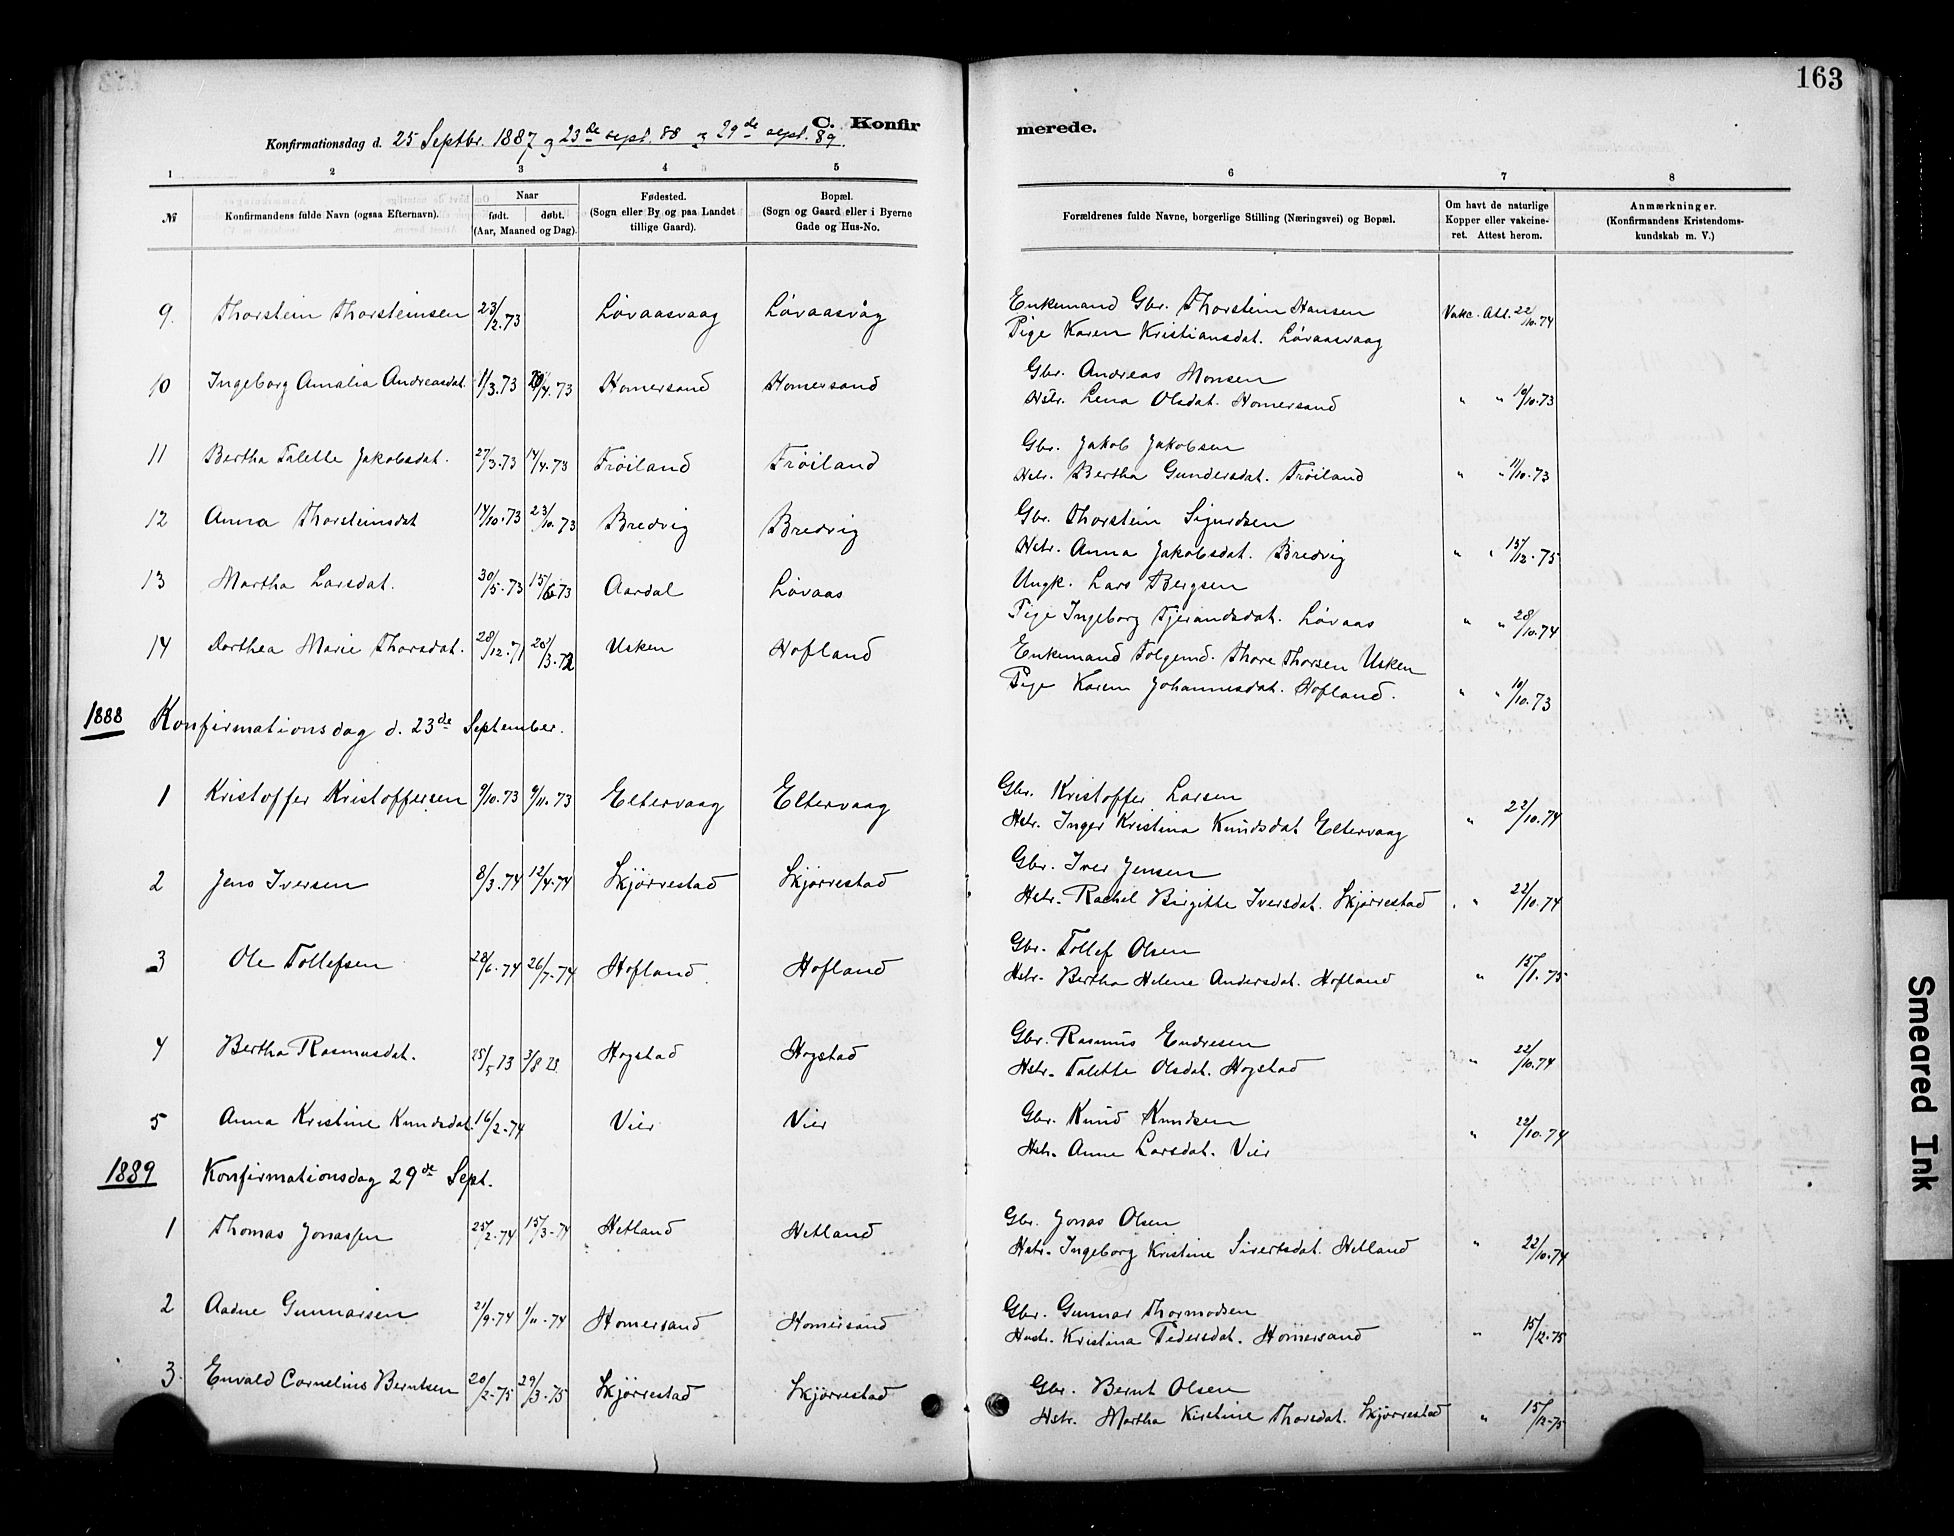 163
C. Konfir merede.
Konfirmationsdag d. 25 Septbr. 1887 og 23de sept. 88 og 29de sept. 89.
1 2 3 4 5 6 7 8
№ Konfirmandens fulde Navn (ogsaa Efternavn). Naar født. døbt. (Aar, Maaned og Dag). Fødested. (Sogn eller By og paa Landet tillige Gaard). Bopæl. (Sogn og Gaard eller i Byerne Gade og Hus-No. Forældrenes fulde Navne, borgerlige Stilling (Næringsvei) og Bopæl. Om havt de naturlige Kopper eller vakcineret. Attest herom. Anmærkninger. (Konfirmandens Kristendomskundskab m. V.)
9. Thorstein Thorsteinsen 23/2.73 Løvaasvaag Løvaasvåg Enkemand Gbr. Thorstein Hansen Vakc. Att. 22/10.74
Pige Karen Kristiansdat. Løvaasvaag
10 Ingeborg Amalia Andreasdat. 1/3.73 /4.73 Homersand Homersand Gbr. Andreas Monsen
Hstr. Lena Olsdat. Homersand " " 10/10.73
11 Bertha Talette Jakobsdat. 27/3.73 14/4.73 Frøiland Frøiland Gbr. Jakob Jakobsen
Hstr. Bertha Gundersdat. Frøiland " " 11/10.73
12 Anna Thorsteinsdat 14/10.73 23/10.73 Bredvig Bredvig Gbr. Thorstein Sigurdsen
Hstr. Anna Jakobsdat. Bredvig " " 15/12.75
13 Martha Larsdat. 30/5.73 15/6.73 Aardal Løvaas Ungk. Lars Bergsen
Pige Ingeborg Tjerandsdat. Løvaas " " 28/10.74
14 Dorthea Marie Thorsdat. 28/12.71 20/3.72 Usken Hofland Enkemand Folgemd. Thore Thorsen Usken
Pige Karen Johannesdat. Hofland. " " 10/10.73
1888 Konfirmationsdag d. 23de September.
1 Kristoffer Kristoffersen 9/10.73 9/11.73 Eltervaag Eltervaag Gbr. Kristoffer Larsen
Hstr. Inger Kristina Knudsdat Eltervaag " 22/10.74
2 Jens Iversen 8/3.74 12/4.74 Skjørrestad Skjørrestad Gbr. Iver Jensen
Hstr. Rachel Birgitte Iversdat. Skjørrestad " " 22/10.74
3 Ole Tollefsen 28/6.74 26/7.74 Hofland. Hofland Gbr. Tollef Olsen
Hstr. Bertha Helene Andersdat. Hofland " 15/1.75
4 Bertha Rasmusdat. 25/5 73 3/8 73. Hogstad Hogstad Gbr. Rasmus Endresen
Hstr. Talette Olsdat. Hogstad " 22/10.74
5 Anna Kristine Knudsdat. 16/2.74 Vier Vier Gbr. Knud Knudsen
Hstr. Anne Larsdat. Vier " 22/10.74
1889 Konfirmationsdag 29de Sept.
1 Thomas Jonassen 25/2.74 15/3.74 Hetland Hetland Gbr. Jonas Olsen
Hstr. Ingeborg Kristine Sivertsdat. Hetland " 22/10.74
2 Aadne Gunnarsen 21/9.74 1/11.74 Homersand Homersand Gbr. Gunnar Thormodsen
Hustr. Kristina Pedersdat. Homersand " 15/12.75
3. Envald Cornelius Berntsen 20/2.75 29/3.75 Skjørrestad Skjørrestad Gbr. Bernt Olsen
Hstr. Martha Kirstine Thorsdat. Skjørrestad " 15/12.75
Smeared Ink